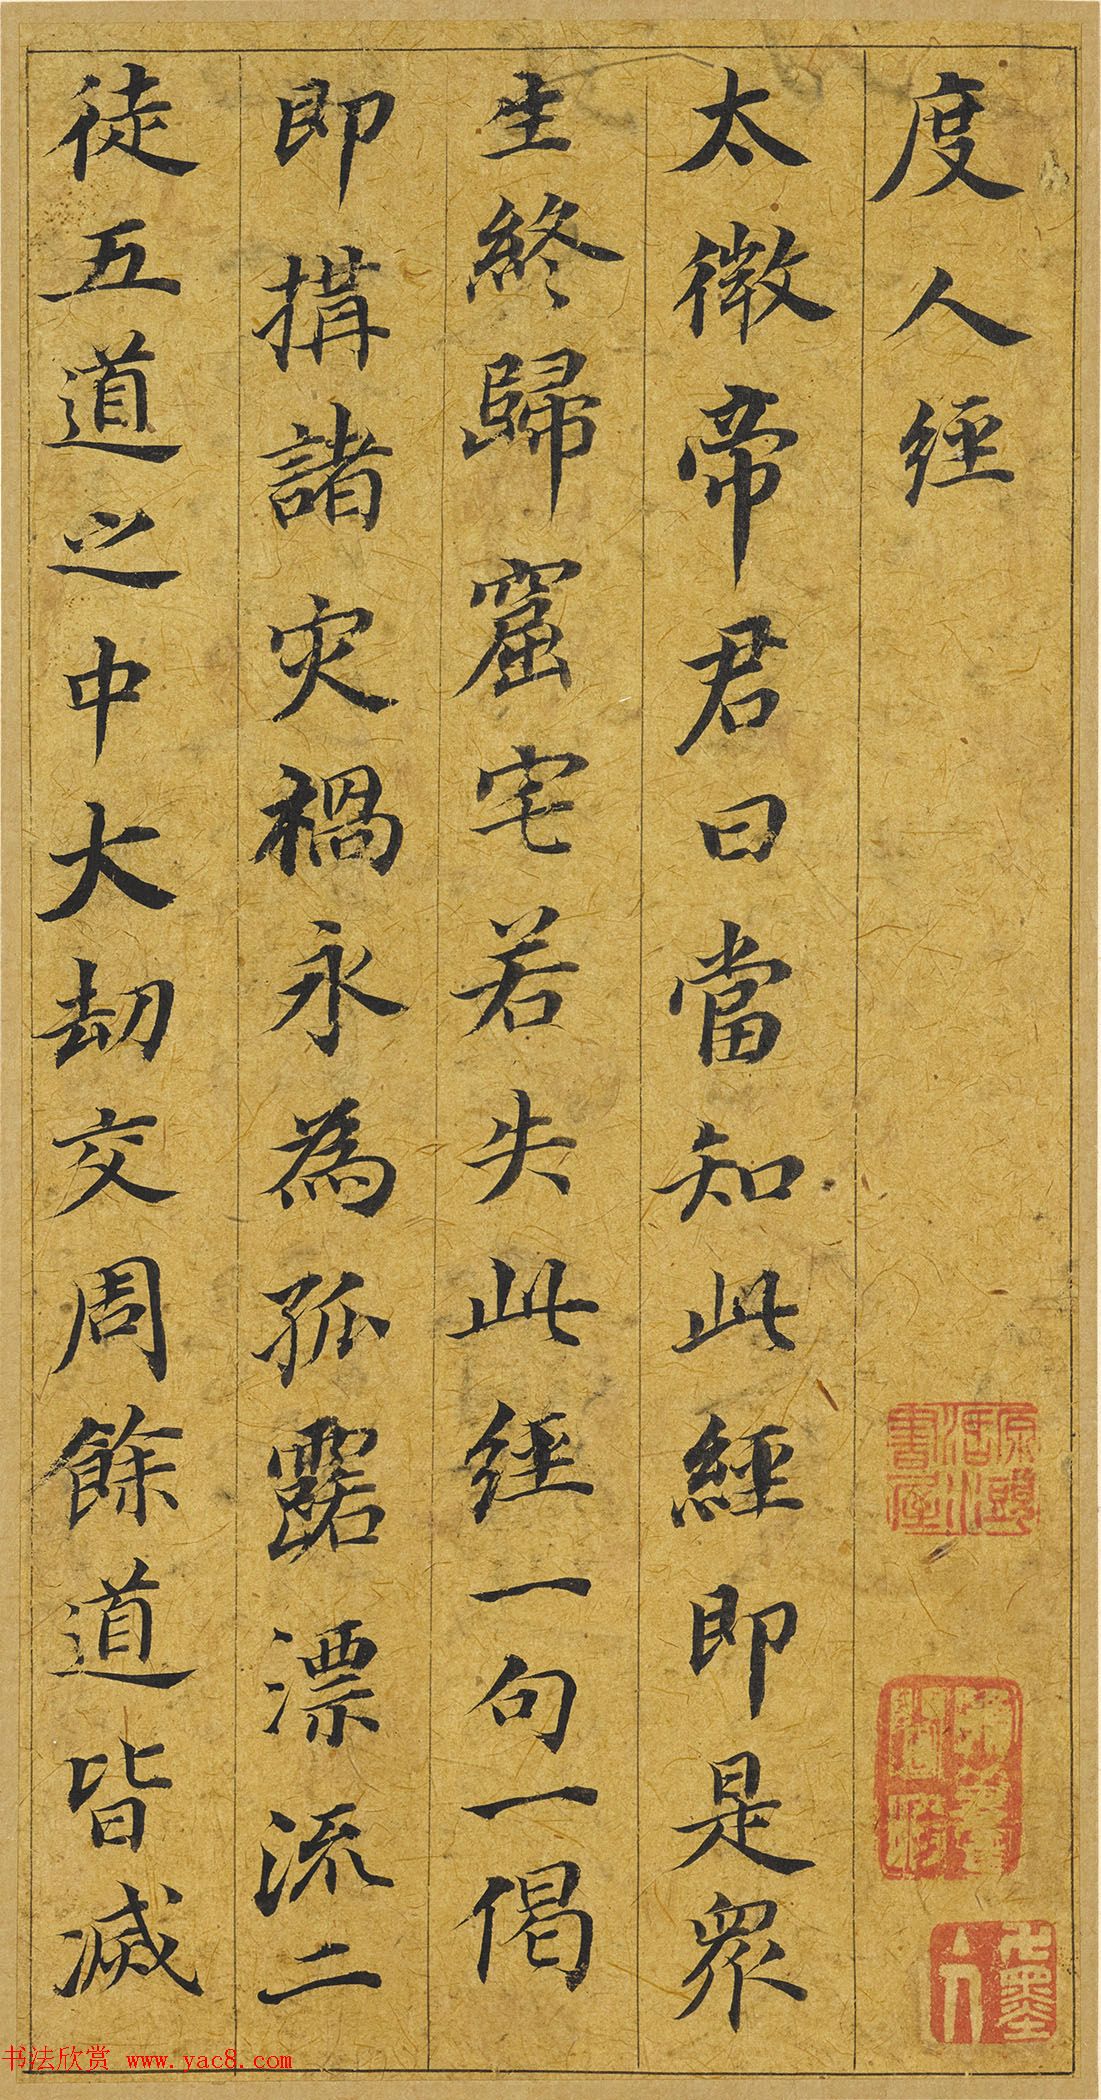 度人經
太微帝君曰當知此經即是眾
生終歸窟宅若失此經一句一偈
即搆諸灾禍永為孤露漂流二
徒五道之中大劫交周餘道皆滅
书法欣赏 www.yac8.com